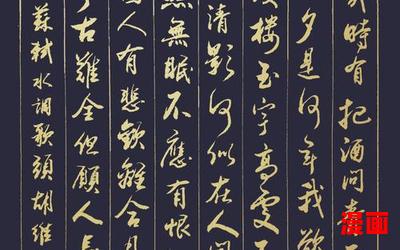 時有把酒問青
夕是何年我欲
樓玉宇高處不
清影何似在人間
無眠不應有恨
人有悲歡離合月
古難全但願人長
蘇軾水調歌頭胡維